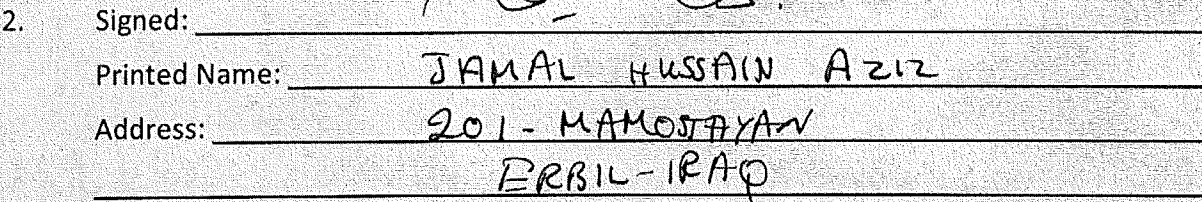 2. Signed:
Printed Name: JAMAL HUSSAIN AZIZ
Address: 201 - MAMOSTAYAN
ERBIL - IRAQ